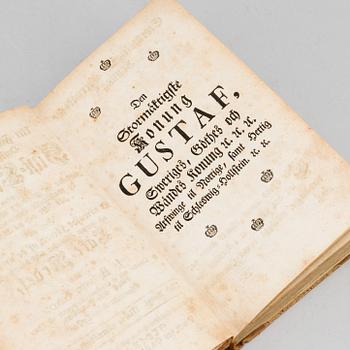 Den
Stormäktigste
Konung
GUSTAF,
Sweriges, Göthes och
Wändes Konung ꝛc. ꝛc. ꝛc.
Arfwinge til Norrige, samt Hertig
til Schleswig-Hollstein. ꝛc. ꝛc.